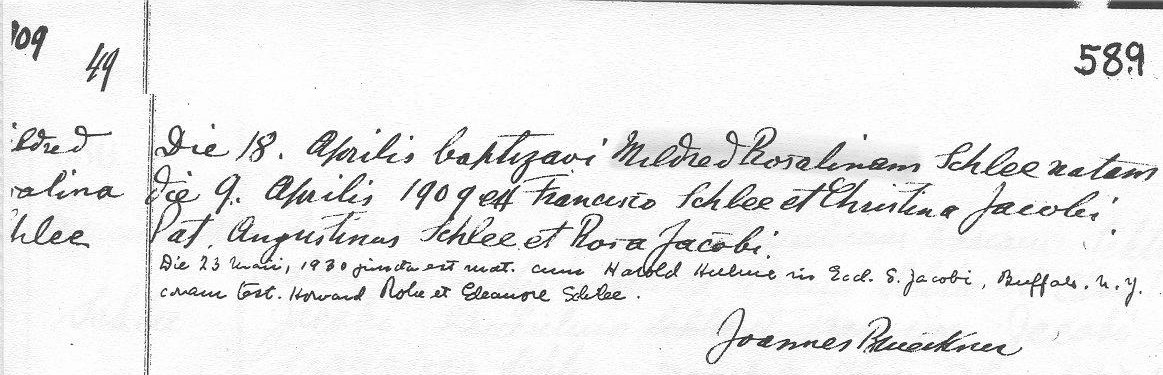 109
49
589
ildred
Die 18. Aprilis baptizavi Mildred Rosalinam Schlee natam
ralina
die 9. Aprilis 1909 ex Francisco Schlee et Christina Jacobi
hlee
Pat. Augustinus Schlee et Rosa Jacobi.
Die 23 Maii, 1930 juncta est mat. cum Harold in Eccl. S. Jacobi, Buffalo, N.Y.
coram test. Howard et Eleanore Schlee.
Joannes Brueckner